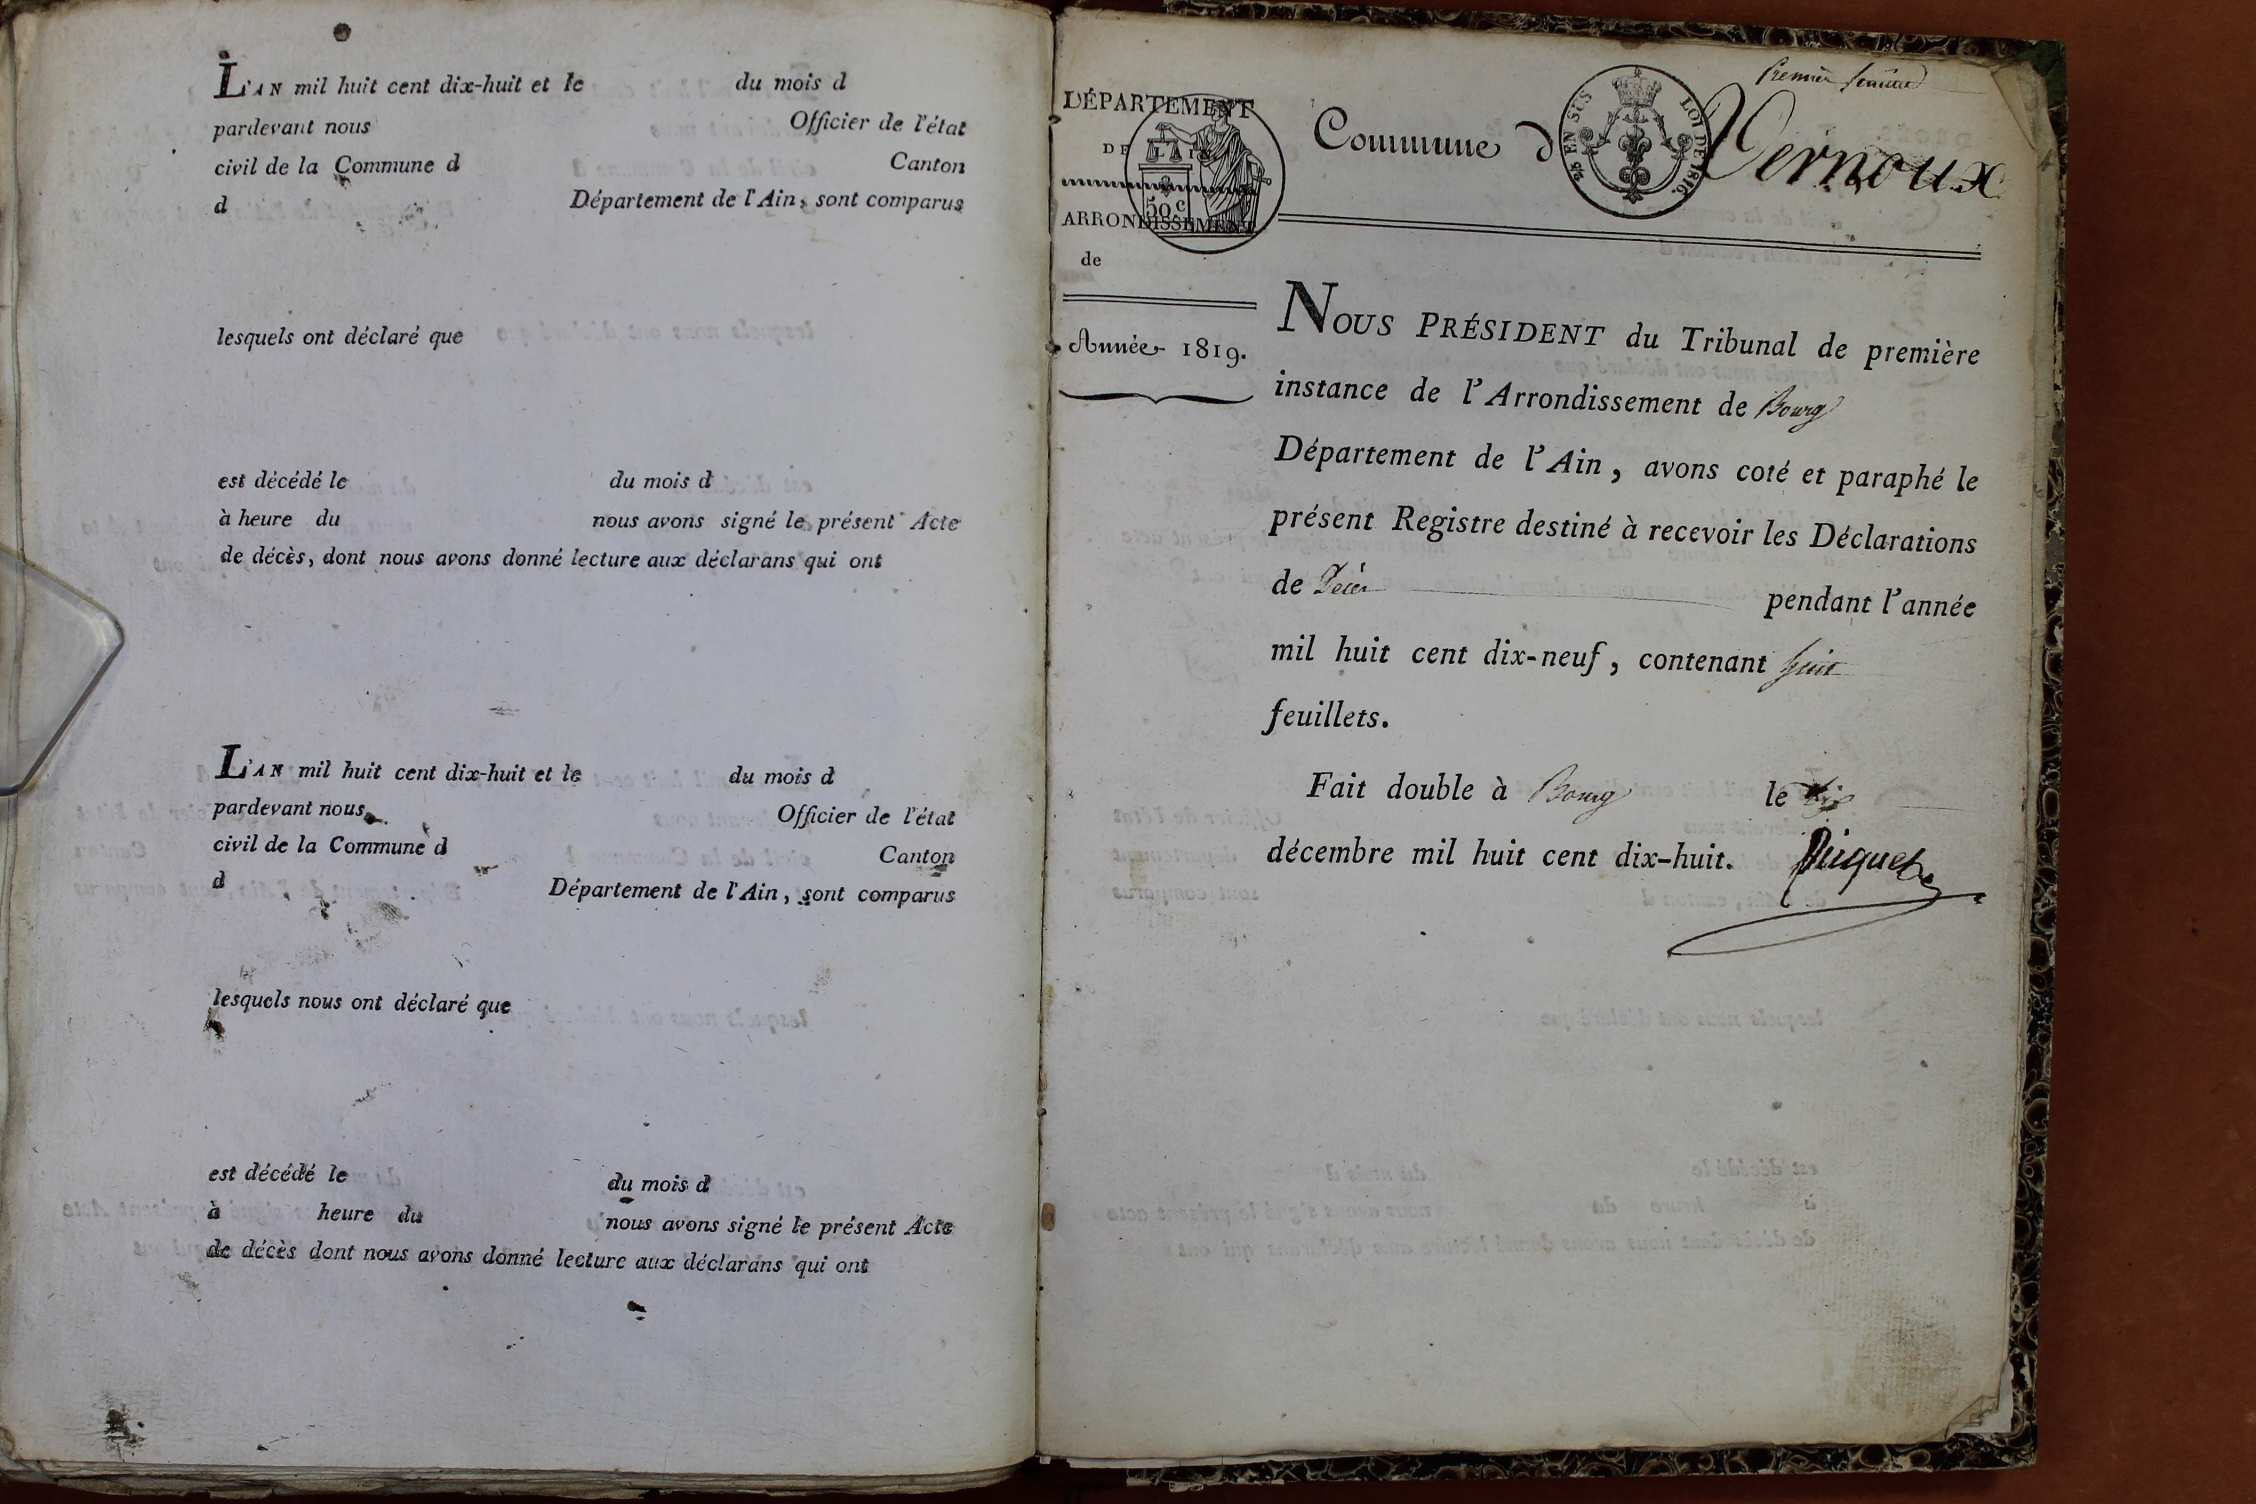 L'AN mil huit cent dix-huit et le du mois d
pardevant nous Officier de l'état
civil de la Commune d Canton
d Département de l'Ain, sont comparus
lesquels ont déclaré que
est décédé le du mois d
à heure du nous avons signé le présent Acte
de décès, dont nous avons donné lecture aux déclarans qui ont
L'AN mil huit cent dix-huit et le du mois d
pardevant nous Officier de l'état
civil de la Commune d Canton
d Département de l'Ain, sont comparus
lesquels nous ont déclaré que
est décédé le du mois d
à heure du nous avons signé le présent Acte
de décès dont nous avons donné lecture aux déclarans qui ont
Premier
DÉPARTEMENT
DE L'AIN
50 c
ARRONDISSEMENT
de
Année 1819.
Commune d Vernoux
EN SUS LOI DE 1816.
NOUS PRÉSIDENT du Tribunal de première
instance de l'Arrondissement de Bourg
Département de l'Ain, avons coté et paraphé le
présent Registre destiné à recevoir les Déclarations
de Décès pendant l'année
mil huit cent dix-neuf, contenant huit
feuillets.
Fait double à Bourg le dix
décembre mil huit cent dix-huit. Riquet